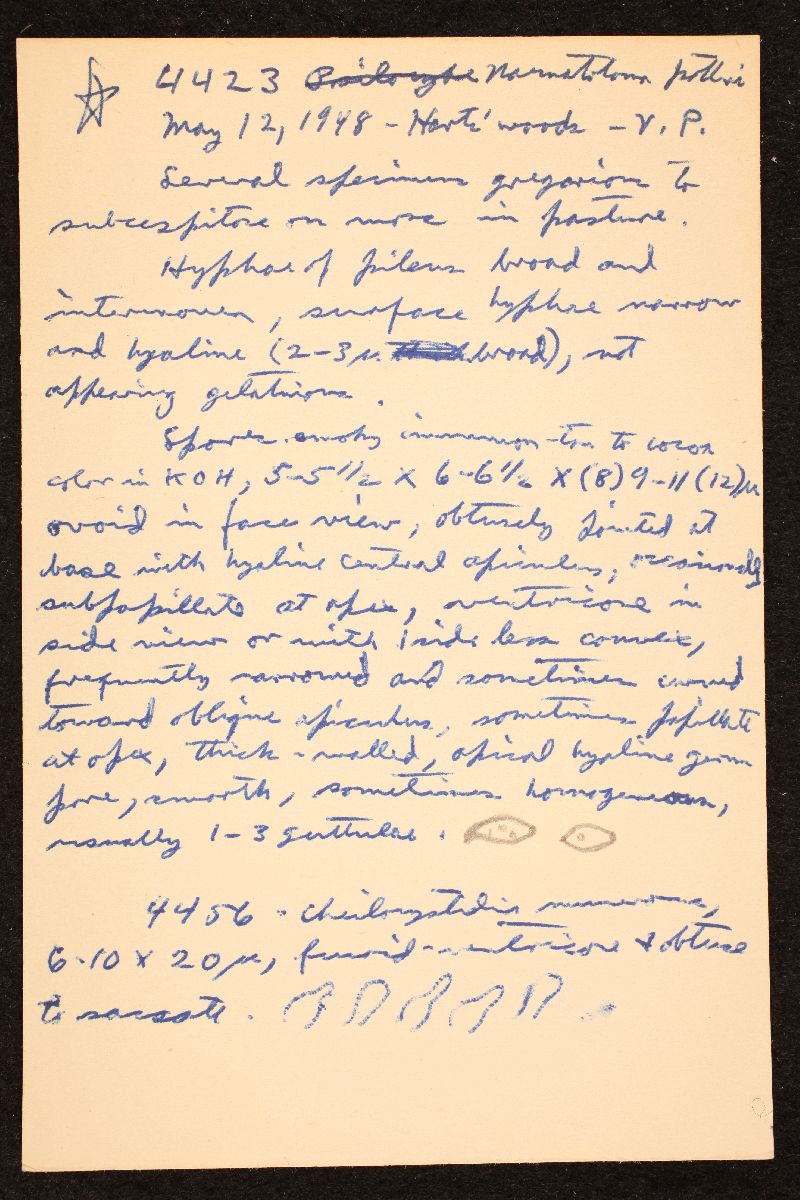 4423 Psilocybe Naematoloma
May 12, 1948 - Harts' woods - V. P.
Several specimens gregarious to
subcespitose on moss in pasture.
Hyphae of pileus broad and
interwoven, surface hyphae narrow
and hyaline (2-3 µ broad), not
appearing gelatinous.
Spores smoky cinnamon-tan to cocoa
color in KOH, 5-5 1/2 X 6-6 1/2 X (8) 9-11 (12) µ
ovoid in face view, obtusely pointed at
base with hyaline central apiculus, occasionally
subpapillate at apex, ventricose in
side view or with 1 side less convex,
frequently narrowed and sometimes curved
toward oblique apiculus, sometimes papillate
at apex, thick-walled, apical hyaline germ
pore, smooth, sometimes homogeneous,
usually 1-3 guttulae.
4456 - cheilocystidia numerous,
6-10 X 20 µ, fusoid-ventricose & obtuse
to saccate.